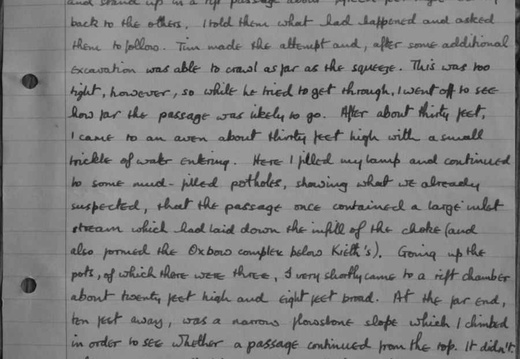 and stand up in a rift passage about fifteen feet high
back to the others. I told them what had happened and asked
them to follow. Tim made the attempt and, after some additional
excavation was able to crawl as far as the squeeze. This was too
tight, however, so while he tried to get through, I went off to see
how far the passage was likely to go. After about thirty feet,
I came to an aven about thirty feet high with a small
trickle of water entering. Here I filled my lamp and continued
to some mud-filled potholes, showing what we already
suspected, that the passage once contained a large inlet
stream which had laid down the infill of the choke (and
also formed the Oxbow complex below Kieth's). Going up the
pots, of which there were three, I very shortly came to a rift chamber
about twenty feet high and eight feet broad. At the far end,
ten feet away, was a narrow flowstone slope which I climbed
in order to see whether a passage continued from the top. It didn't